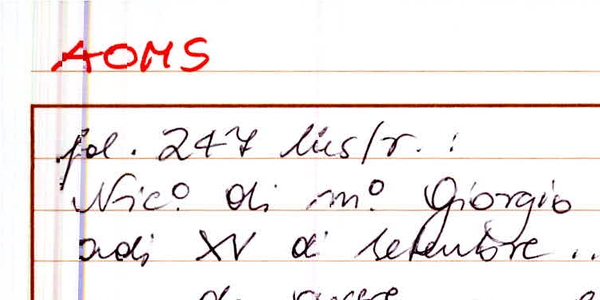 AOMS
fol. 247 bis/r. :
Nic.º di m.º Giorgio
adi XV di setenbre ..
di